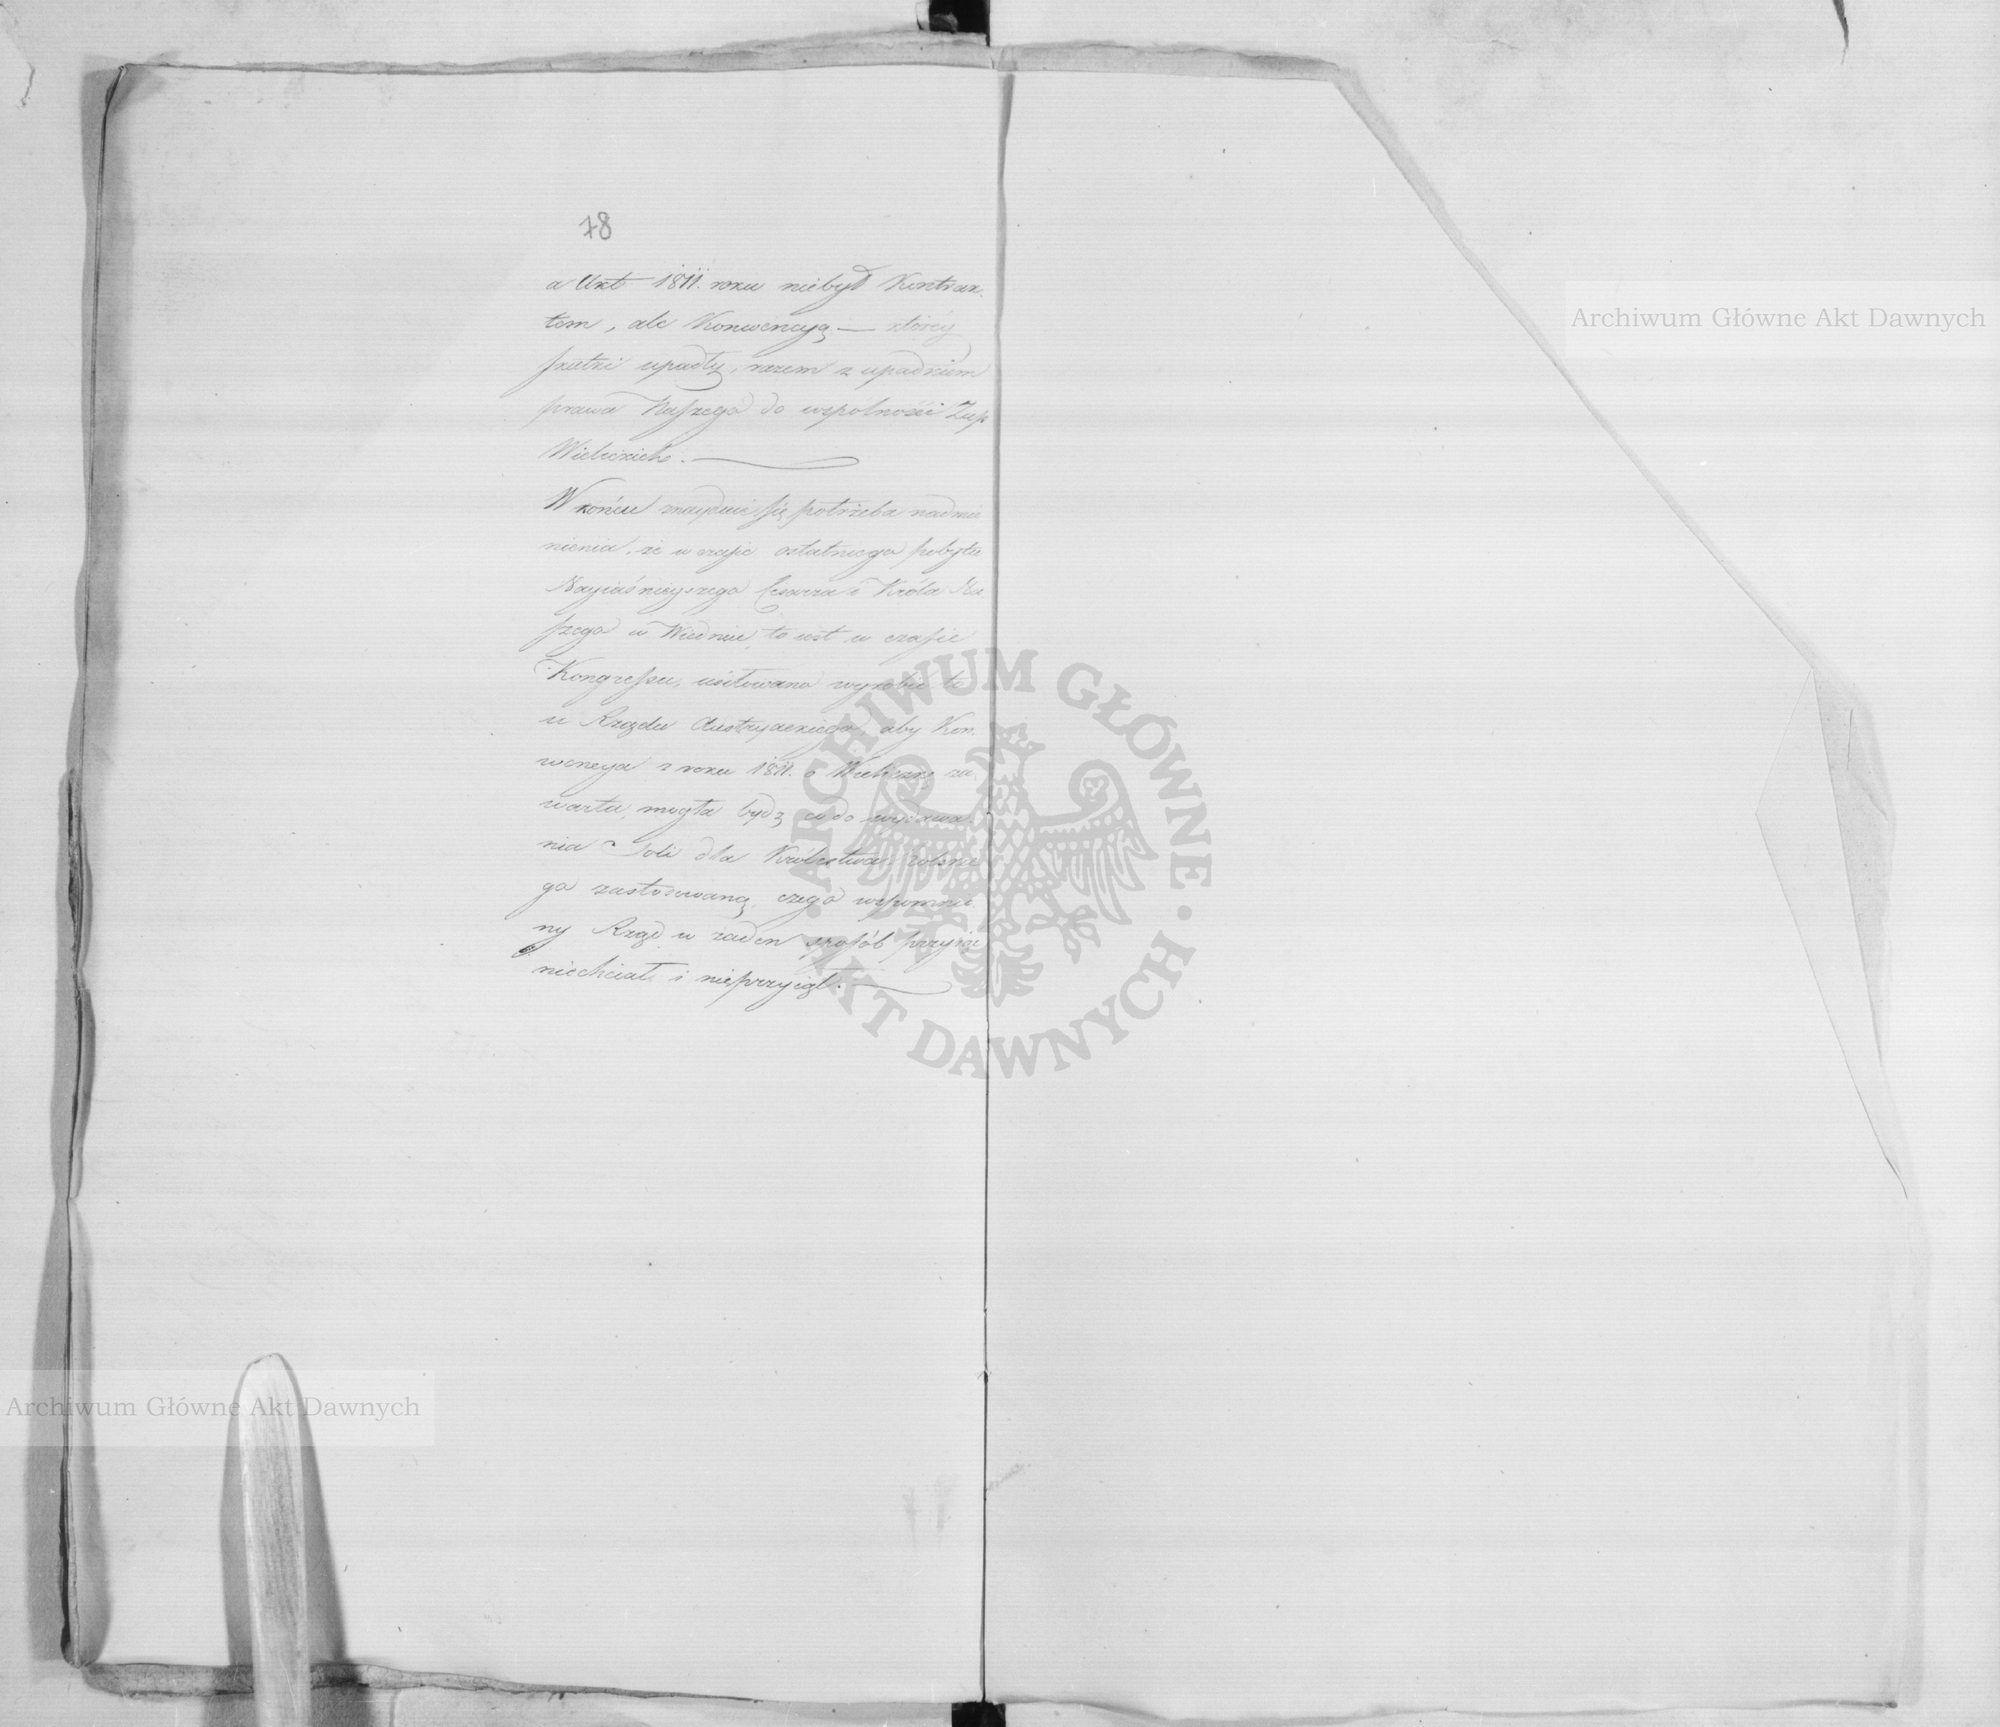 78
a Akt 1811. roku niebył Kontrak-
tem, ale Konwencyą — którey
skutki upadły, razem z upadkiem
prawa Naszego do wspolności Żup
Wielickich.
W końcu znayduie się potrzeba nadmie
nienia, że w czasie ostatniego pobytu
Nayiaśnieyszego Cesarza i Króla Na
szego w Wiedniu, to iest w czasie
Kongressu, usiłowano wyrobić to
u Rządu Austryackiego, aby Kon-
wencya z roku 1811. o Wieliczkę za-
warta, mogła bydź i do wydawa-
nia Soli dla Królestwa Polskie
go zastosowaną, czego wspomnio-
ny Rząd w żaden sposób przyiąć
niechciał i nieprzyiął.
Archiwum Główne Akt Dawnych
ARCHIWUM GŁÓWNE AKT DAWNYCH
Archiwum Główne Akt Dawnych